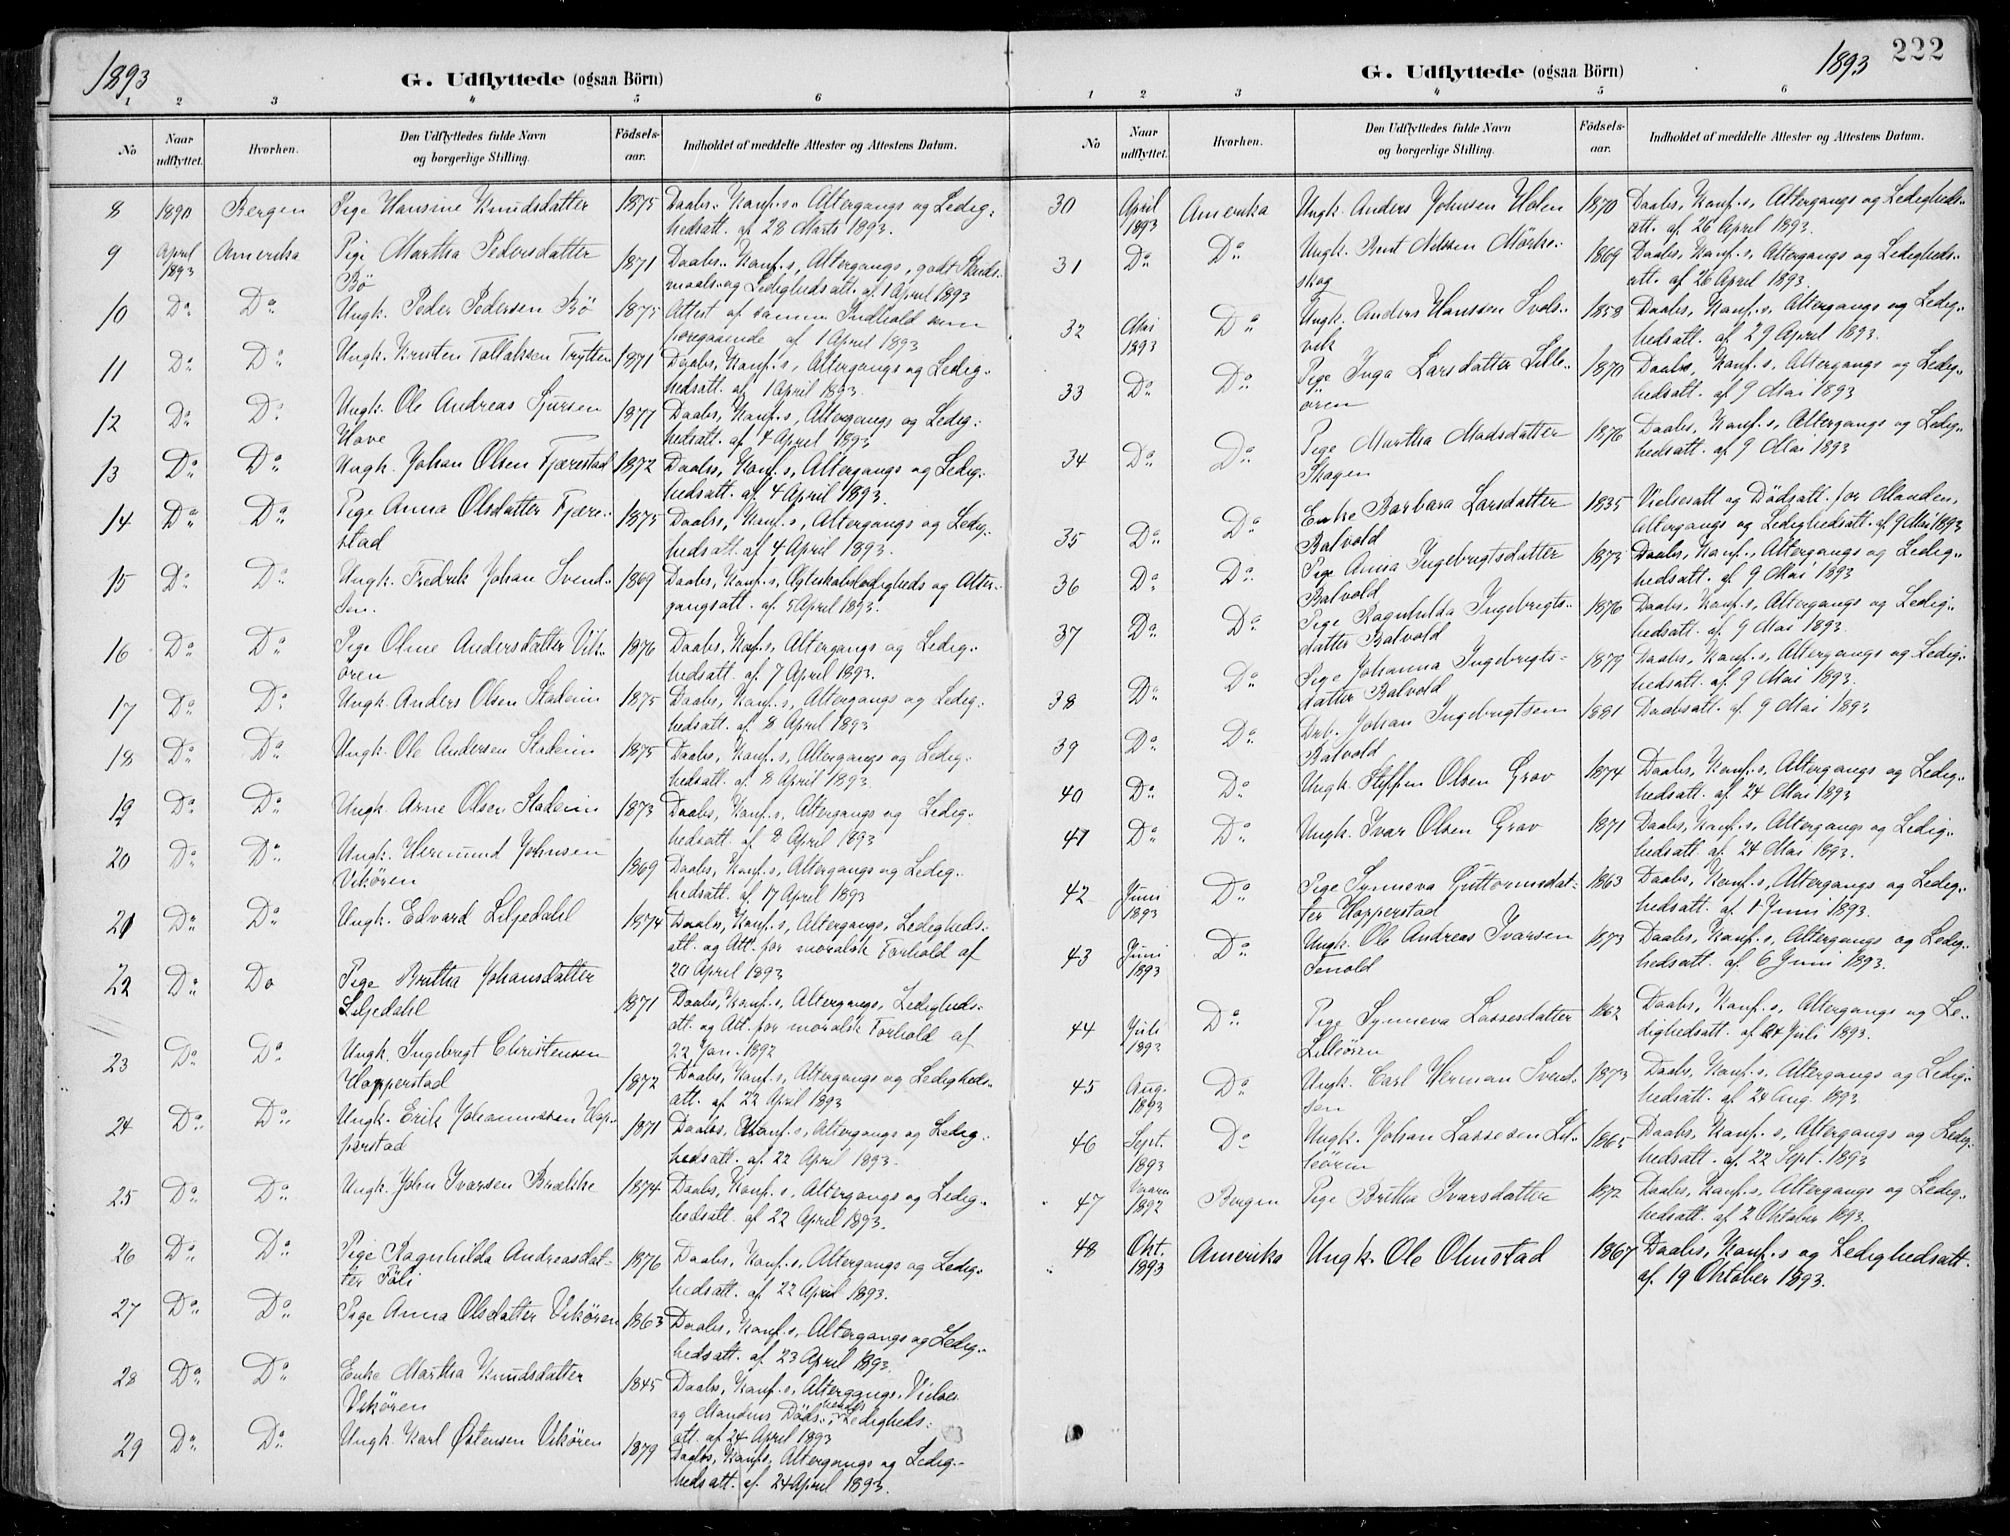 1893
G. Udflyttede (ogsaa Börn)
1 2 3 4 5 6
No
Naar udflyttet.
Hvorhen.
Den Udflyttedes fulde Navn og borgerlige Stilling.
Födsels-aar.
Indholdet af meddelte Attester og Attestens Datum.
8 1890 Bergen Pige Hansine Knudsdatter 1875 Daabs.. Konf.s.. Altergangs og Ledig:
hedsatt. af 28 Marts 1893.
9 April 1893 Amerika Pige Martha Pedersdatter 1871 Daabs.. Konf.s, Altergangs, godt Skuds..
Bö maals- og Ledighedsatt. af 1 April 1893
10 Do Do Ungk. Peder Pedersen Bö 1875 Attest af samme Indhold som
foregaaende af 1 April 1893
11 Do Do Ungk. Kristen Tollaksen Trytten 1871 Daabs, Konf.s, Altergangs og Ledig:
hedsatt. af 1 April 1893.
12 Do Do Ungk. Ole Andreas Sjursen 1877 Daabs, Konf.s, Altergangs og Ledig:
Hove hedsatt. af 4 April 1893
13 Do Do Ungk. Johan Olsen Fjærestad 1872 Daabs, Konf.s, Altergangs og Ledig:
hedsatt. af 4 April 1893.
14 Do Do Pige Anna Olsdatter Fjære.. 1875 Daabs, Konf.s, Altergangs og Ledig:
stad hedsatt. af 4 April 1893.
15 Do Do Ungk. Fredrik Johan Svend.. 1869 Daabs, Konf.s, Ægteskabsledigheds og Alter..
sen. gangsatt. af 5 April 1893.
16 Do Do Pige Oline Andersdatter Vik.. 1876 Daabs, Konf.s, Altergangs og Ledig..
ören hedsatt. af 7 April 1893.
17 Do Do Ungk. Anders Olsen Stadeim 1875 Daabs, Konf.s, Altergangs og Ledig:
hedsatt. af 8 April 1893
18 Do Do Ungk. Ole Andersen Stadeim 1875 Daabs, Konf.s, Altergangs og Ledig.
hedsatt. af 8 April 1893.
19 Do Do Ungk. Arne Olsen Stadeim 1873 Daabs, Konf.s, Altergangs og Ledig.
hedsatt. af 8 April 1893
20 Do Do Ungk. Hermund Johnsen 1869 Daabs, Konf.s, Altergangs og Ledig..
Vikören hedsatt. af 17 April 1893
21 Do Do Ungk. Edvard Liljedahl 1874 Daabs, Konf.s, Altergangs, Ledigheds:
att. og Att. for moralsk Forhold af
20 April 1893
22 Do Do Pige Britha Johansdatter
Liljedahl 1871 Daabs, Konf.s, Altergangs, Ledigheds:
att. og Att. for moralsk Forhold af
22 Jan. 1892
23 Do Do Ungk. Ingebrigt Christensen
Hopperstad 1872 Daabs, Konf.s, Altergangs og Ledigheds..
att. af 22 April 1893
24 Do Do Ungk. Erik Johannessen Hop.. 1871 Daabs, Konf.s, Altergangs og Ledig..
perstad hedsatt. af 22 April 1893.
25 Do Do Ungk. John Ivarsen Brække 1874 Daabs, Konf.s, Altergangs og Ledig:
hedsatt. af 22 April 1893.
26 Do Do Pige Ragnhilda Andreasdat- 1876 Daabs, Konf.s, Altergangs og Ledig..
ter Föli hedsatt. af 22 April 1893.
27 Do Do Pige Anna Olsdatter Vikören 1863 Daabs, Konf.s, Altergangs og Ledig..
hedsatt. af 23 April 1893.
28 Do Do Enke Martha Knudsdatter 1845 Daabs, Konf.s, Altergangs, Vielses
Vikören og Mandens Döds.., hendes Ledigheds:
att. af 24 April 1893
29 Do Do Ungk. Karl Östensen Vikören 1879 Daabs, Konf.s, Altergangs og Ledig:
hedsatt. af 24 April 1893.
1893 222
G. Udflyttede (ogsaa Börn)
1 2 3 4 5 6
No
Naar udflyttet.
Hvorhen.
Den Udflyttedes fulde Navn og borgerlige Stilling.
Födsels-aar.
Indholdet af meddelte Attester og Attestens Datum.
30 April 1893 Amerika Ungk. Anders Johnsen Holen 1870 Daabs, Konf.s, Altergangs og Ledigheds..
att. af 26 April 1893.
31 Do Do Ungk. Bent Nilssen Mörke.. 1869 Daabs, Konf.s, Altergangs og Ledigheds:
skog att. af 26 April 1893.
32 Mai 1893 Do Ungk. Anders Hanssen Svols.. 1858 Daabs, Konf.s, Altergangs og Ledig..
vik hedsatt. af 29 April 1893.
33 Do Do Pige Inga Larsdatter Lille.. 1870 Daabs, Konf.s, Altergangs og Ledig..
ören hedsatt. af 9 Mai 1893
34 Do Do Pige Martha Madsdatter 1876 Daabs, Konf.s, Altergangs og Ledig..
Skogen hedsatt. af 9 Mai 1893
35 Do Do Enke Barbara Larsdatter 1835 Vielsesatt og Dödsatt. for Manden,
Balvold Altergangs og Ledighedsatt. af 9 Mai 1893
36 Do Do Pige Anna Ingebrigtsdatter 1873 Daabs, Konf.s, Altergangs og Ledig..
Balvold hedsatt. af 9 Mai 1893
37 Do Do Pige Ragnhilda Ingebrigts.. 1876 Daabs, Konf.s, Altergangs og Ledig:
datter Balvold hedsatt. af 9 Mai 1893.
38 Do Do Pige Johanna Ingebrigts- 1879 Daabs, Konf.s, Altergangs og Ledig:
datter Balvold hedsatt. af 9 Mai 1893.
39 Do Do Drb. Johan Ingebrigtsen 1881 Daabsatt. af 9 Mai 1893
Balvold
40 Do Do Ungk. Steffen Olsen Grov 1874 Daabs, Konf.s, Altergangs og Ledig..
hedsatt. af 24 Mai 1893
41 Do Do Ungk. Ivar Olsen Grov 1871 Daabs, Konf.s, Altergangs og Ledig:
hedsatt. af 24 Mai 1893.
42 Juni 1893 Do Pige Synneva Guttormsdat- 1863 Daabs, Konf.s, Altergangs og Ledig:
ter Hopperstad hedsatt. af 1 Juni 1893.
43 Juni 1893 Do Ungk. Ole Andreas Ivarsen 1873 Daabs, Konf.s, Altergangs og Ledig..
Tenold hedsatt. af 6 Juni 1893.
44 Juli 1893 Do Pige Synneva Lassesdatter 1862 Daabs, Konf.s, Altergangs og Le..
Lilleören dighedsatt. af 24 Juli 1893.
45 Aug. 1893 Do Ungk. Carl Herman Svend- 1873 Daabs, Konf.s, Altergangs og Ledig:
sen hedsatt. af 24 Aug 1893.
46 Sept. 1893 Do Ungk. Johan Lassesen Lil.. 1865 Daabs, Konf.s, Altergangs og Ledig:
leören hedsatt. af 22 Sept. 1893
47 Vaaren 1892 Bergen Pige Britha Ivarsdatter 1872 Daabs, Konf.s, Altergangs og Ledig:
hedsatt. af 2 Oktober 1893.
48 Okt. 1893 Amerika Ungk. Ole Olmstad 1867 Daabs, Konf.s og Ledighedsatt.
af 19 Oktober 1893.